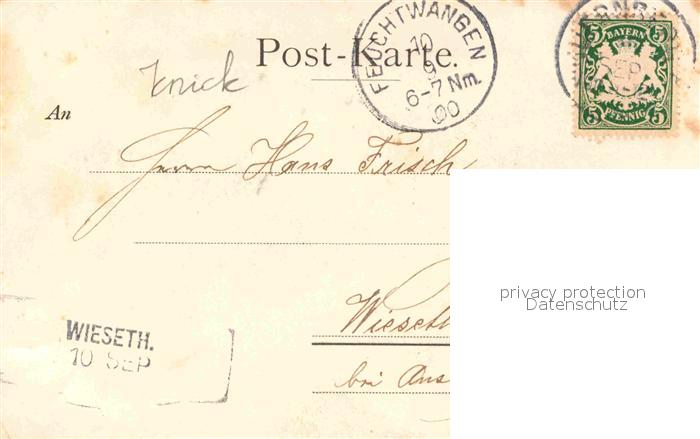 Post-Karte.
FEUCHTWANGEN
10
6-7 Nm
00
SEP
5 BAYERN 5
5 PFENNIG 5
knick
An
Herrn Hans Frisch
Wieseth
bei Ans
WIESETH.
10 SEP
privacy protection
Datenschutz